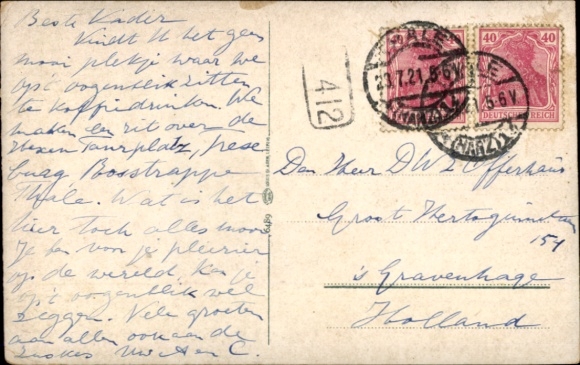 Beste Kader
Vindt U het geen
mooi plekje waar we
op't oogenblik zitten
te koffiedrinken. We
maken een rit over de
Hexen Tanzplatz, Trese
burg Bosstrappe
Thale. Wat is het
hier toch alles mooi
Je kan van je plezier
op de wereld, kan je
op't oogenblik wel
zeggen. Vele groeten
aan allen ook aan de
zuskes C.
412
THALE
20.7.21. 5-6 V
(HARZ)
THALE
21. 5-6 V
(HARZ)
40 40
DEUTSCHES REICH
Den Heer D W L Offerhaus
Groot Hertoginnelaan
154
's Gravenhage
Holland